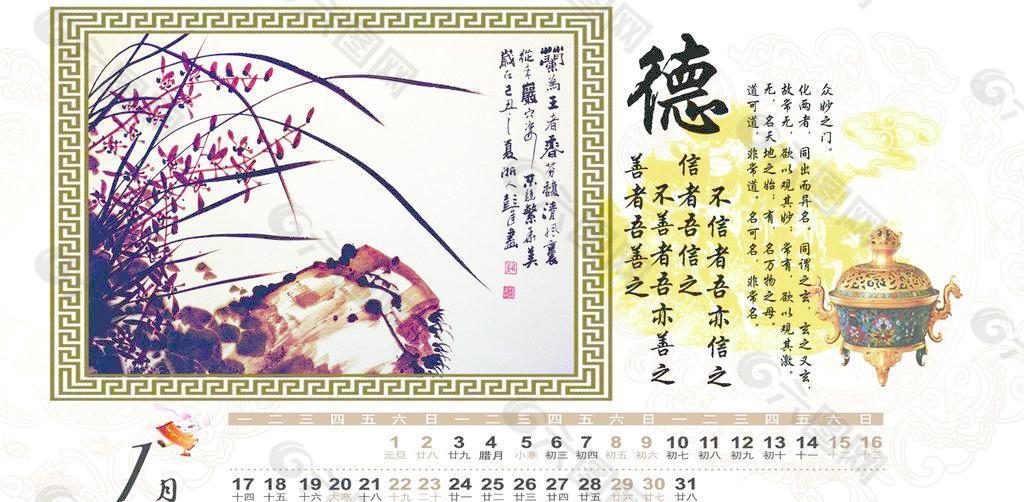 蘭為王者香芬馥清風裏
從来巖穴姿不競繁華美
歲在己丑之夏浙人
德
善者吾善之
不善者吾亦善之
信者吾信之
不信者吾亦信之
道可道，非常道。名可名，非常名。
无，名天地之始；有，名万物之母。
故常无，欲以观其妙；常有，欲以观其徼。
化两者，同出而异名。同谓之玄，玄之又玄，
众妙之门。
1月
一 二 三 四 五 六 日 一 二 三 四 五 六 日 一 二 三 四 五 六 日
1 2 3 4 5 6 7 8 9 10 11 12 13 14 15 16
元旦 廿八 廿九 腊月 小寒 初三 初四 初五 初六 初七 初八 初九 初十 十一 十二 十三
17 18 19 20 21 22 23 24 25 26 27 28 29 30 31
十四 十五 十六 大寒 十八 十九 二十 廿一 廿二 廿三 廿四 廿五 廿六 廿七 廿八